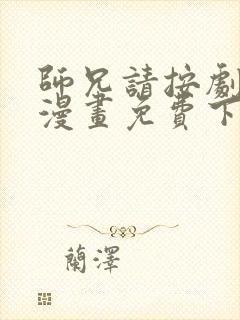 師兄請按劇
漫畫免費下
蘭澤